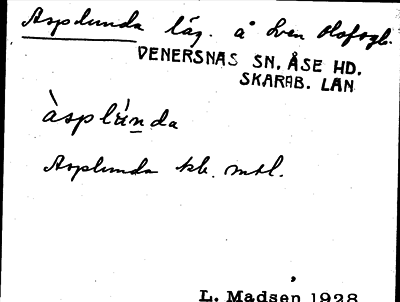 Asplunda läg. å Sven Olofsgb.
VENERSNÄS SN, ÅSE HD.
SKARAB. LÄN
àsplúnda
Asplunda kb. mtl.
L. Madsen 1928